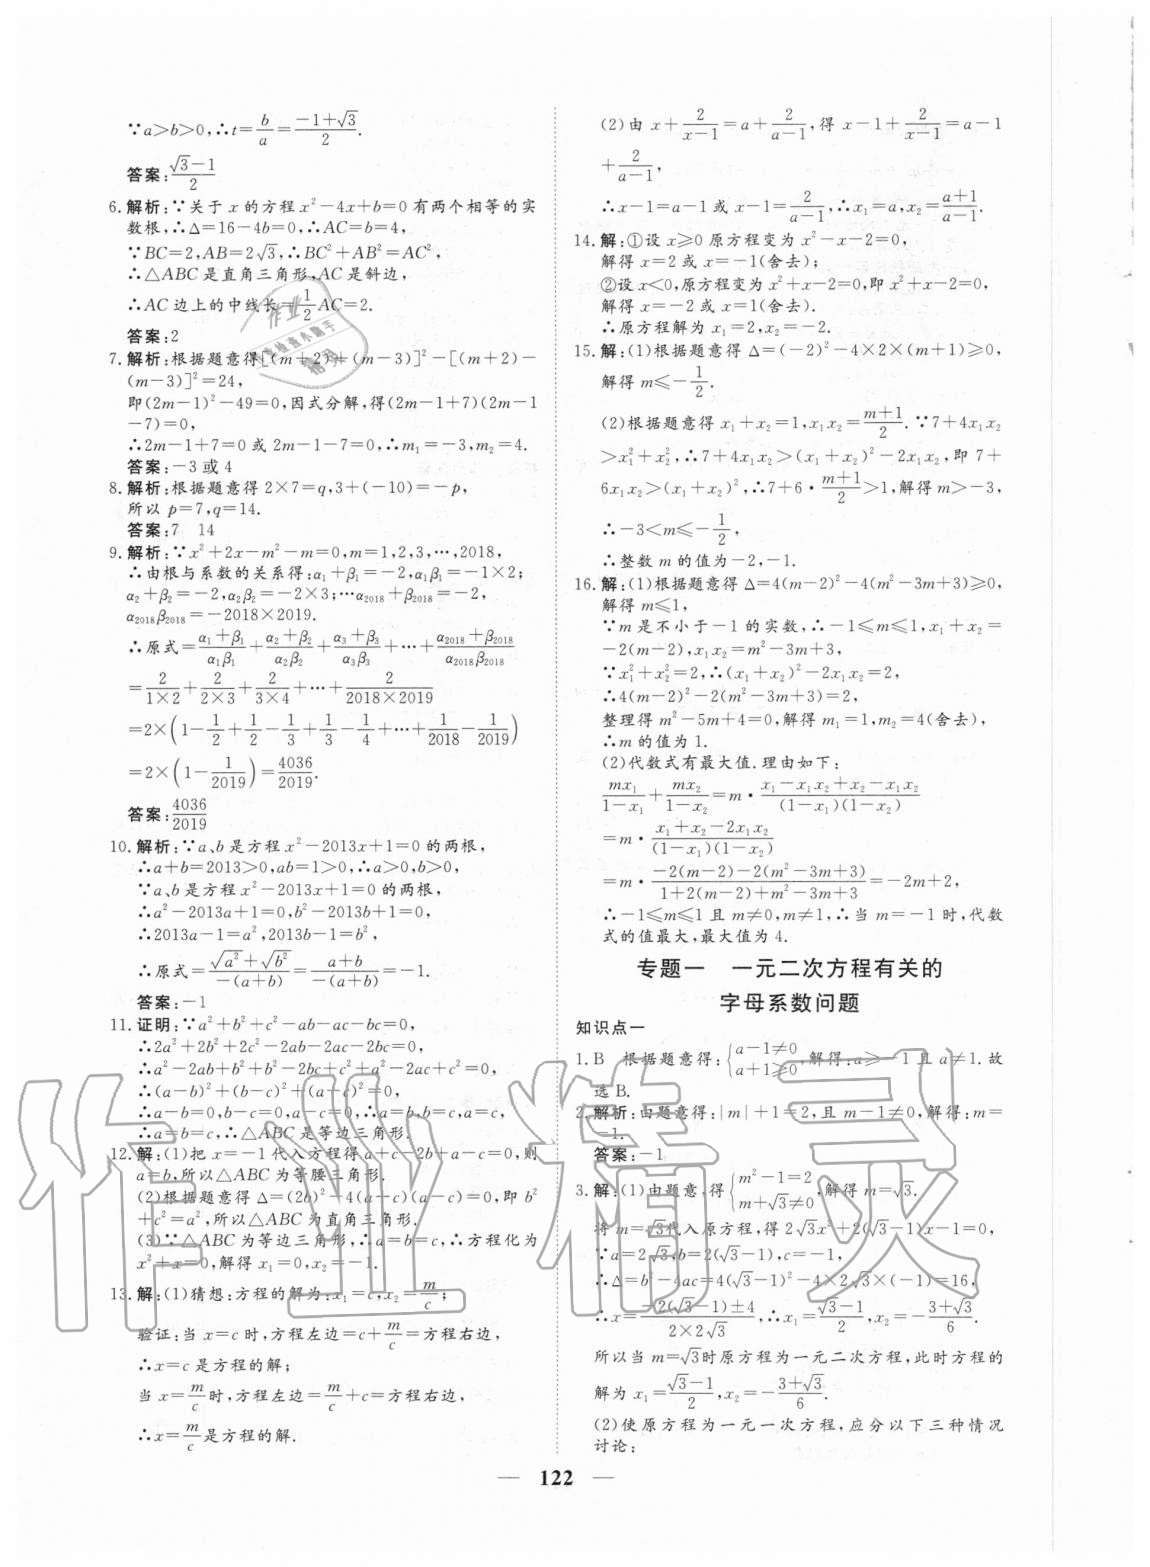 ∵a>b>0,∴t=b/a=(-1+√3)/2.
答案:(√3-1)/2
6.解析:∵关于 x 的方程 x²-4x+b=0 有两个相等的实
数根,∴Δ=16-4b=0,∴AC=b=4,
∵BC=2,AB=2√3,∴BC²+AB²=AC²,
∴△ABC 是直角三角形,AC 是斜边,
∴AC 边上的中线长=1/2 AC=2.
答案:2
7.解析:根据题意得[(m+2)+(m-3)]²-[(m+2)-
(m-3)]²=24,
即(2m-1)²-49=0,因式分解,得(2m-1+7)(2m-1
-7)=0,
∴2m-1+7=0 或 2m-1-7=0,∴m₁=-3,m₂=4.
答案:-3 或 4
8.解析:根据题意得 2×7=q,3+(-10)=-p,
所以 p=7,q=14.
答案:7 14
9.解析:∵x²+2x-m²-m=0,m=1,2,3,…,2018,
∴由根与系数的关系得:α₁+β₁=-2,α₁β₁=-1×2;
α₂+β₂=-2,α₂β₂=-2×3;…α₂₀₁₈+β₂₀₁₈=-2,
α₂₀₁₈β₂₀₁₈=-2018×2019.
∴原式=(α₁+β₁)/(α₁β₁)+(α₂+β₂)/(α₂β₂)+(α₃+β₃)/(α₃β₃)+…+(α₂₀₁₈+β₂₀₁₈)/(α₂₀₁₈β₂₀₁₈)
=2/(1×2)+2/(2×3)+2/(3×4)+…+2/(2018×2019)
=2×(1-1/2+1/2-1/3+1/3-1/4+…+1/2018-1/2019)
=2×(1-1/2019)=4036/2019.
答案:4036/2019
10.解析:∵a、b 是方程 x²-2013x+1=0 的两根,
∴a+b=2013>0,ab=1>0,∴a>0,b>0,
∵a、b 是方程 x²-2013x+1=0 的两根,
∴a²-2013a+1=0,b²-2013b+1=0,
∴2013a-1=a²,2013b-1=b²,
∴原式=(√a²+√b²)/(-(a+b))=(a+b)/(-(a+b))=-1.
答案:-1
11.证明:∵a²+b²+c²-ab-ac-bc=0,
∴2a²+2b²+2c²-2ab-2ac-2bc=0,
∴a²-2ab+b²+b²-2bc+c²+a²-2ac+c²=0,
∴(a-b)²+(b-c)²+(a-c)²=0,
∴a-b=0,b-c=0,a-c=0,∴a=b,b=c,a=c,
∴a=b=c,∴△ABC 是等边三角形.
12.解:(1)把 x=-1 代入方程得 a+c-2b+a-c=0,则
a=b,所以△ABC 为等腰三角形.
(2)根据题意得 Δ=(2b)²-4(a-c)(a+c)=0,即 b²
+c²=a²,所以△ABC 为直角三角形.
(3)∵△ABC 为等边三角形,∴a=b=c,∴方程化为
x²+x=0,解得 x₁=0,x₂=-1.
13.解:(1)猜想:方程的解为:x₁=c,x₂=m/c;
验证:当 x=c 时,方程左边=c+m/c=方程右边,
∴x=c 是方程的解;
当 x=m/c时,方程左边=m/c+c=方程右边,
∴x=m/c是方程的解.
(2)由 x+2/(x-1)=a+2/(a-1),得 x-1+2/(x-1)=a-1
+2/(a-1),
∴x-1=a-1 或 x-1=2/(a-1),∴x₁=a,x₂=(a+1)/(a-1).
14.解:①设 x⩾0 原方程变为 x²-x-2=0,
解得 x=2 或 x=-1(舍去);
②设 x<0,原方程变为 x²+x-2=0,即 x²+x-2=0,
解得 x=-2 或 x=1(舍去).
∴原方程解为 x₁=2,x₂=-2.
15.解:(1)根据题意得 Δ=(-2)²-4×2×(m+1)⩾0,
解得 m⩽-1/2.
(2)根据题意得 x₁+x₂=1,x₁x₂=(m+1)/2.∵7+4x₁x₂
>x₁²+x₂²,∴7+4x₁x₂>(x₁+x₂)²-2x₁x₂,即 7+
6x₁x₂>(x₁+x₂)²,∴7+6·(m+1)/2>1,解得 m>-3,
∴-3<m⩽-1/2,
∴整数 m 的值为-2,-1.
16.解:(1)根据题意得 Δ=4(m-2)²-4(m²-3m+3)⩾0,
解得 m⩽1,
∵m 是不小于-1 的实数,∴-1⩽m⩽1,x₁+x₂=
-2(m-2),x₁x₂=m²-3m+3,
∵x₁²+x₂²=2,∴(x₁+x₂)²-2x₁x₂=2,
∴4(m-2)²-2(m²-3m+3)=2,
整理得 m²-5m+4=0,解得 m₁=1,m₂=4(舍去),
∴m 的值为 1.
(2)代数式有最大值.理由如下:
mx₁/(1-x₁)+mx₂/(1-x₂)=m·(x₁-x₁x₂+x₂-x₁x₂)/((1-x₁)(1-x₂))
=m·(x₁+x₂-2x₁x₂)/((1-x₁)(1-x₂))
=m·(-2(m-2)-2(m²-3m+3))/(1+2(m-2)+m²-3m+3)=-2m+2,
∴-1⩽m⩽1 且 m≠0,m≠1,∴当 m=-1 时,代数
式的值最大,最大值为 4.
专题一 一元二次方程有关的
字母系数问题
知识点一
1.B 根据题意得:{a-1≠0 a+1⩾0,解得:a⩾-1 且 a≠1.故
选 B.
2.解析:由题意得:|m|+1=2,且 m-1≠0,解得:m=
-1.
答案:-1
3.解:(1)由题意,得{m²-1=2 m+√3≠0,解得 m=√3.
将 m=√3代入原方程,得 2√3x²+2(√3-1)x-1=0,
∵a=2√3,b=2(√3-1),c=-1,
∴Δ=b²-4ac=4(√3-1)²-4×2√3×(-1)=16,
∴x=(-2(√3-1)±4)/(2×2√3),∴x₁=(√3-1)/2,x₂=-(3+√3)/6.
所以当 m=√3时原方程为一元二次方程,此时方程的
解为 x₁=(√3-1)/2,x₂=-(3+√3)/6.
(2)使原方程为一元一次方程,应分以下三种情况
讨论:
— 122 —
作业精灵